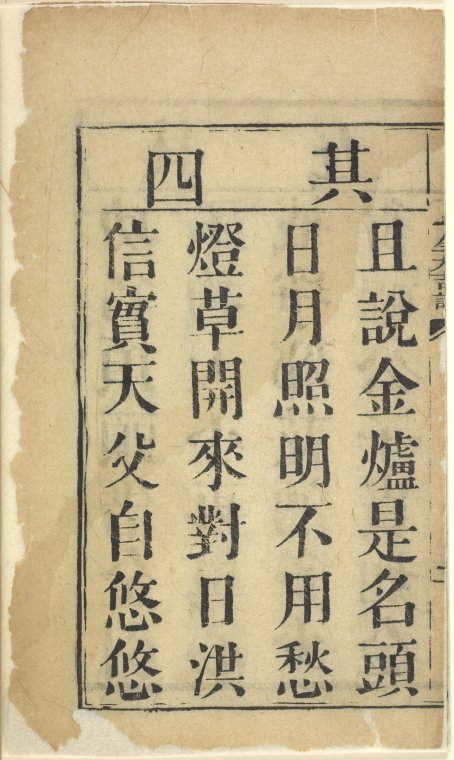 其四
且說金爐是名頭
日月照明不用愁
燈草開來對日洪
信實天父自悠悠